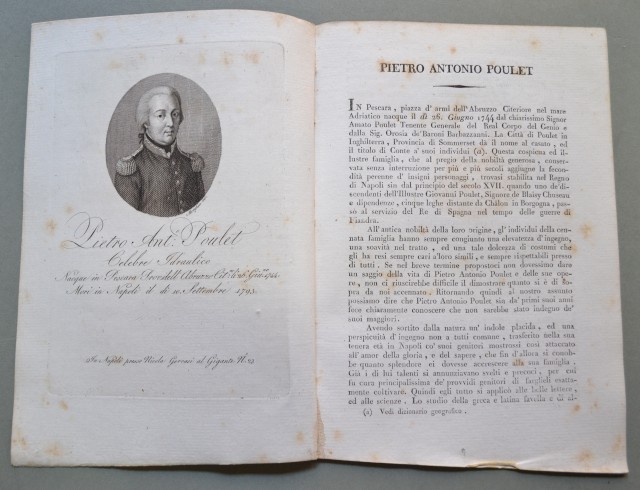 Pietro Ant.º Poulet
Celebre Idraulico
Nacque in Pescara Prov. dell'Abruzzo Cit.re li 26 Giu.no 1744.
Morì in Napoli il dì 10. Settembre 1793.
In Napoli presso Nicola Gervasi al Gigante N.º 23
PIETRO ANTONIO POULET
IN Pescara, piazza d'armi dell'Abruzzo Citeriore nel mare
Adriatico nacque il dì 26. Giugno 1744 dal chiarissimo Signor
Amato Poulet Tenente Generale del Real Corpo del Genio e
dalla Sig. Orosia de' Baroni Barbazzanni. La Città di Poulet in
Inghilterra, Provincia di Sommerset dà il nome al casato, ed
il titolo di Conte a' suoi individui (a). Questa cospicua ed il-
lustre famiglia, che al pregio della nobiltà generosa, conser-
vata senza interruzione per più e più secoli aggiugne la fecon-
dità perenne d'insigni personaggi, trovasi stabilita nel Regno
di Napoli sin dal principio del secolo XVII. quando uno de' di-
scendenti dell'Illustre Giovanni Poulet, Signore de Blaisy Choseau
e dipendenze, cinque leghe distante da Châlon in Borgogna, pas-
sò al servizio del Re di Spagna nel tempo delle guerre di
Fiandra.
All'antica nobiltà della loro origine, gl'individui della cen-
nata famiglia hanno sempre congiunto una elevatezza d'ingegno,
una soavità nel tratto, ed una tale dolcezza di costumi che
gli ha resi sempre cari a' loro simili, e sempre rispettabili presso
di tutti. Se nel breve termine propostoci non dovessimo dare
un saggio della vita di Pietro Antonio Poulet e delle sue ope-
re, non ci riuscirebbe difficile il dimostrare quanto si è di so-
pra da noi accennato. Ritornando quindi al nostro assunto
possiamo dire che Pietro Antonio Poulet sin da' primi suoi anni
fece chiaramente conoscere che non sarebbe stato indegno de'
suoi maggiori.
Avendo sortito dalla natura un' indole placida, ed una
perspicuità d'ingegno non a tutti comune, trasferito nella sua
tenera età in Napoli co' suoi genitori mostrossi così attaccato
all'amor della gloria, e del sapere, che fin d'allora si conob-
be quanto splendore ei dovesse accrescere alla sua famiglia.
Già i di lui talenti si annunciavano svelti e precoci, per cui
fu cura principalissima de' providi genitori di farglieli esatta-
mente coltivare. Quindi egli tutto si applicò alle belle lettere,
ed alle scienze. Lo studio della greca e latina favella e di al-
(a) Vedi dizionario geografico.